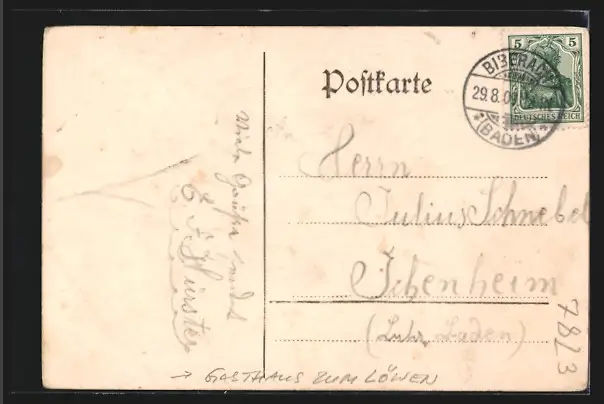 Postkarte
5 5
DEUTSCHES REICH
BIBERACH
29.8.0
* (BADEN) *
Herrn
Julius Schnebel
Ichenheim
(Lahr, Baden)
Viele Grüße sendet
E. F. Hürster
7823
→ GASTHAUS ZUM LÖWEN